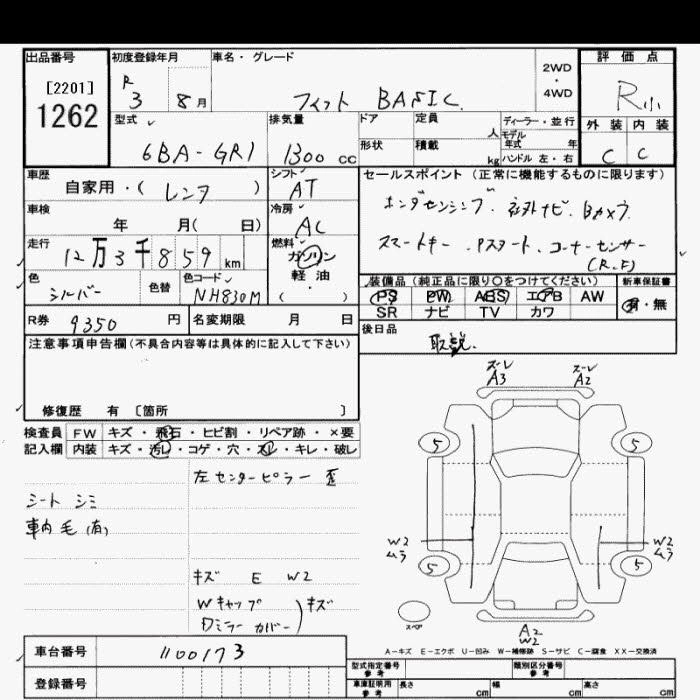 出品番号 初度登録年月 車名・グレード 評価点
[2201]
1262
R 3 8月 フィット BASIC 2WD・4WD R小
型式 排気量 ドア 定員 人 ディーラー・並行 外装 内装
モデル年式 年
6BA-GR1 1300 cc 形状 積載 kg ハンドル 左・右 C C
車歴 シフト セールスポイント(正常に機能するものに限ります)
自家用・( レンタ ) AT
ホンダセンシング 社外ナビ、Bカメラ
車検 冷房
年 月( 日) AC
スマートキー、Pスタート、コーナーセンサー
(R.F)
走行 燃料
12万3千859km ガソリン
軽油・
( )
色 色替 色コード
シルバー NH830M
装備品(純正品に限り○をつけてください) 新車保証書
PS PW ABS エアB AW 有・無
SR ナビ TV カワ
R券 9350 円 名変期限 月 日
後日品
取説.
注意事項申告欄(不具合内容等は具体的に記入して下さい)
修復歴 有 [箇所 ]
検査員 FW キズ・飛石・ヒビ割・リペア跡・×要
記入欄 内装 キズ・汚レ・コゲ・穴・スレ・キレ・破レ
左センターピラー 歪
シート シミ
車内 毛(有)
キズ E W2
Wキャップ
Dミラーカバー) キズ
ズーレ A3 ズーレ A2
5 5
W2 ムラ W2 ムラ
5 5
スペア
A2
W2
A-キズ E-エクボ U-凹み W-補修跡 S-サビ C-腐食 XX-交換済
車台番号 1100173
登録番号
型式指定番号 参考 類別区分番号 参考
車庫証明用 参考 長さ cm 幅 cm 高さ cm